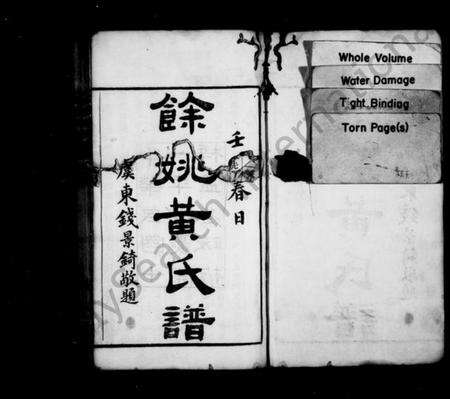 壬
春日
餘姚黃氏譜
虞東錢景錡敬題
Whole Volume
Water Damage
Tight Binding
Torn Page(s)